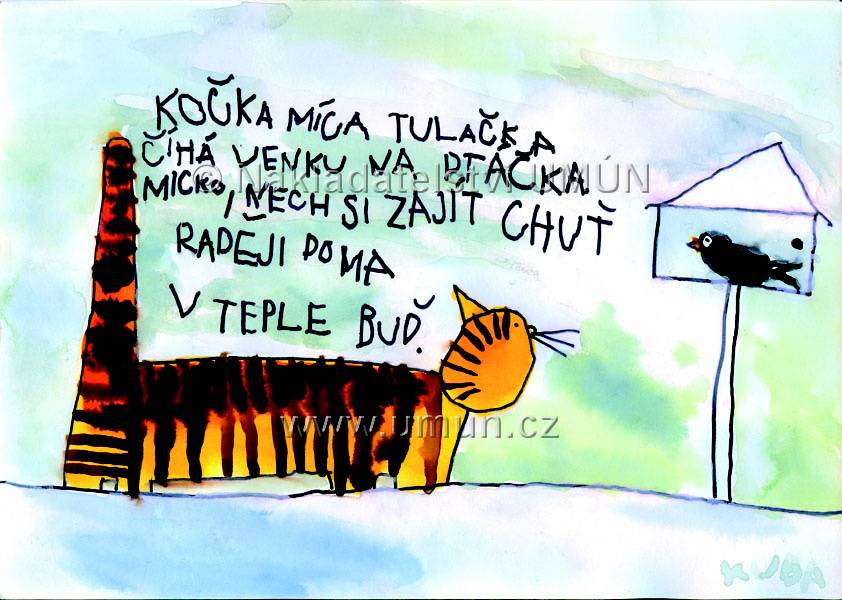 KOČKA MÍCA TULAČKA
ČÍHÁ VENKU NA PTÁČKA
MICKO, NECH SI ZAJÍT CHUŤ
RADĚJI DOMA
V TEPLE BUĎ.
© Nakladatelství UMÚN
www.umun.cz
KUBA